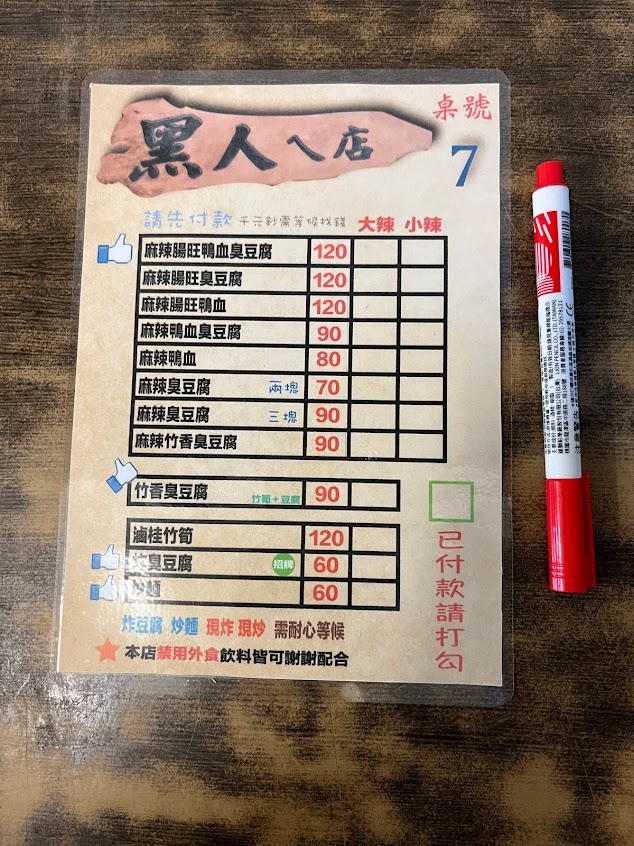 黑人ㄟ店
桌號
7
請先付款 千元鈔需等候找錢 大辣 小辣
麻辣腸旺鴨血臭豆腐 120
麻辣腸旺臭豆腐 120
麻辣腸旺鴨血 120
麻辣鴨血臭豆腐 90
麻辣鴨血 80
麻辣臭豆腐 兩塊 70
麻辣臭豆腐 三塊 90
麻辣竹香臭豆腐 90
竹香臭豆腐 竹筍+豆腐 90
滷桂竹筍 120
臭豆腐 招牌 60
炒麵 60
已付款請打勾
炸豆腐 炒麵 現炸 現炒 需耐心等候
本店禁用外食飲料皆可謝謝配合
LION PENCIL CO., LTD. (TAIWAN)